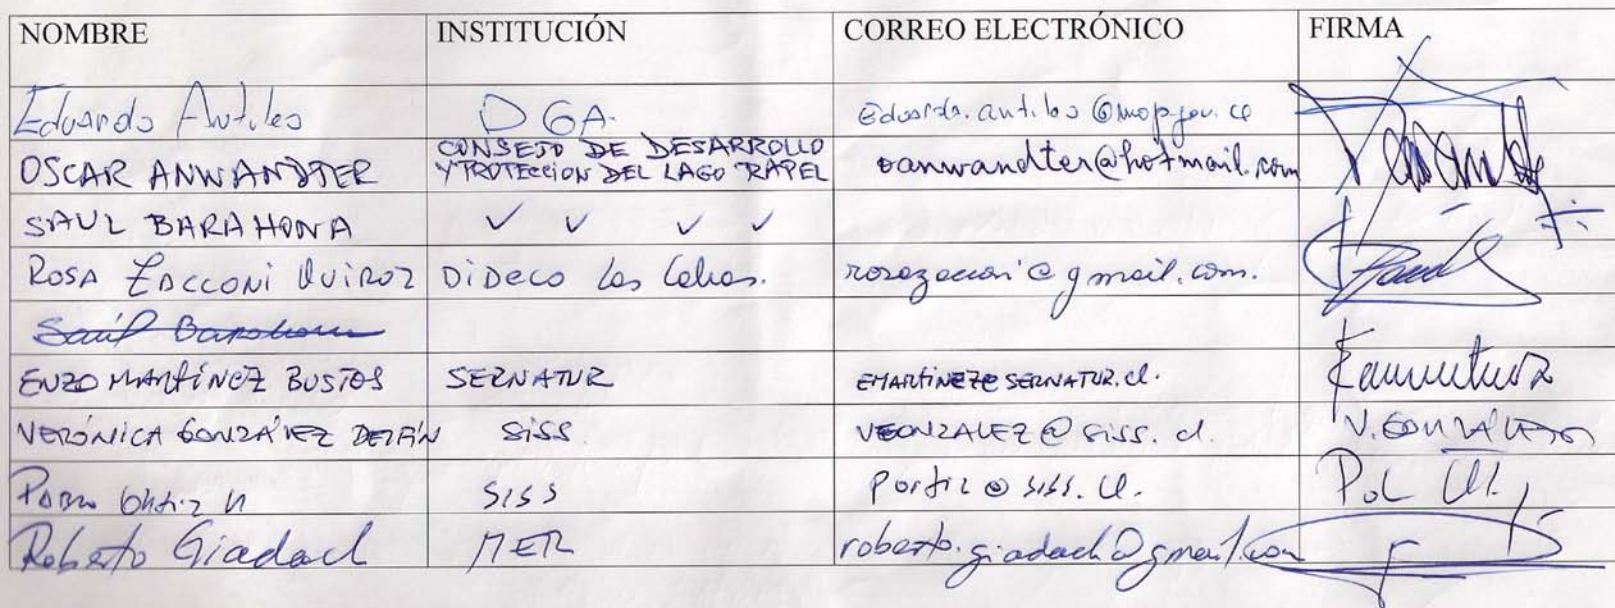 NOMBRE INSTITUCIÓN CORREO ELECTRÓNICO FIRMA
Eduardo Antileo DGA. Eduardo.antileo@mop.gov.cl
OSCAR ANWANDTER CONSEJO DE DESARROLLO
Y PROTECCION DEL LAGO RAPEL oanwandter@hotmail.com
SAUL BARAHONA ✓ ✓ ✓ ✓
ROSA ZACCONI QUIROZ DIDECO Las Cabras. rosazacconi@gmail.com.
Saúl Barahona
ENZO MARTÍNEZ BUSTOS SERNATUR EMARTINEZ@SERNATUR.cl.
VERÓNICA GONZÁLEZ DELFÍN SISS VGONZALEZ@SISS.cl. V.GONZÁLEZ
Pablo Ortiz SISS Portiz@siss.cl.
Roberto Giadach MER roberto.giadach@gmail.com